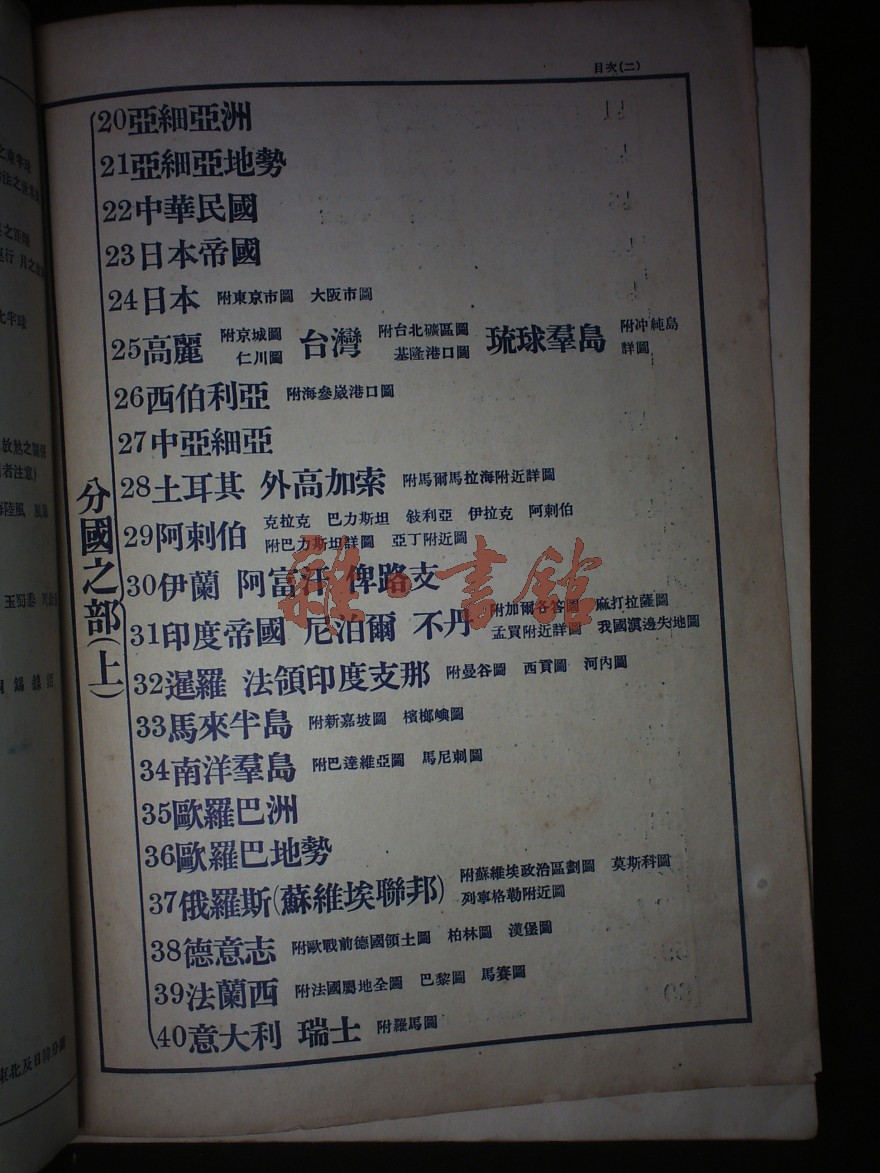 目次(二)
分國之部(上)
20亞細亞洲
21亞細亞地勢
22中華民國
23日本帝國
24日本 附東京市圖 大阪市圖
25高麗 附京城圖 仁川圖 台灣 附台北礦區圖 基隆港口圖 琉球羣島 附冲繩島詳圖
26西伯利亞 附海參崴港口圖
27中亞細亞
28土耳其 外高加索 附馬爾馬拉海附近詳圖
29阿剌伯 克拉克 巴力斯坦 敍利亞 伊拉克 阿剌伯
附巴力斯坦詳圖 亞丁附近圖
30伊蘭 阿富汗 俾路支
31印度帝國 尼泊爾 不丹 附加爾各答圖 麻打拉薩圖
孟買附近詳圖 我國滇邊失地圖
32暹羅 法領印度支那 附曼谷圖 西貢圖 河內圖
33馬來半島 附新嘉坡圖 檳榔嶼圖
34南洋羣島 附巴達維亞圖 馬尼剌圖
35歐羅巴洲
36歐羅巴地勢
37俄羅斯(蘇維埃聯邦) 附蘇維埃政治區劃圖 莫斯科圖
列寧格勒附近圖
38德意志 附歐戰前德國領土圖 柏林圖 漢堡圖
39法蘭西 附法國屬地全圖 巴黎圖 馬賽圖
40意大利 瑞士 附羅馬圖
雜·書館